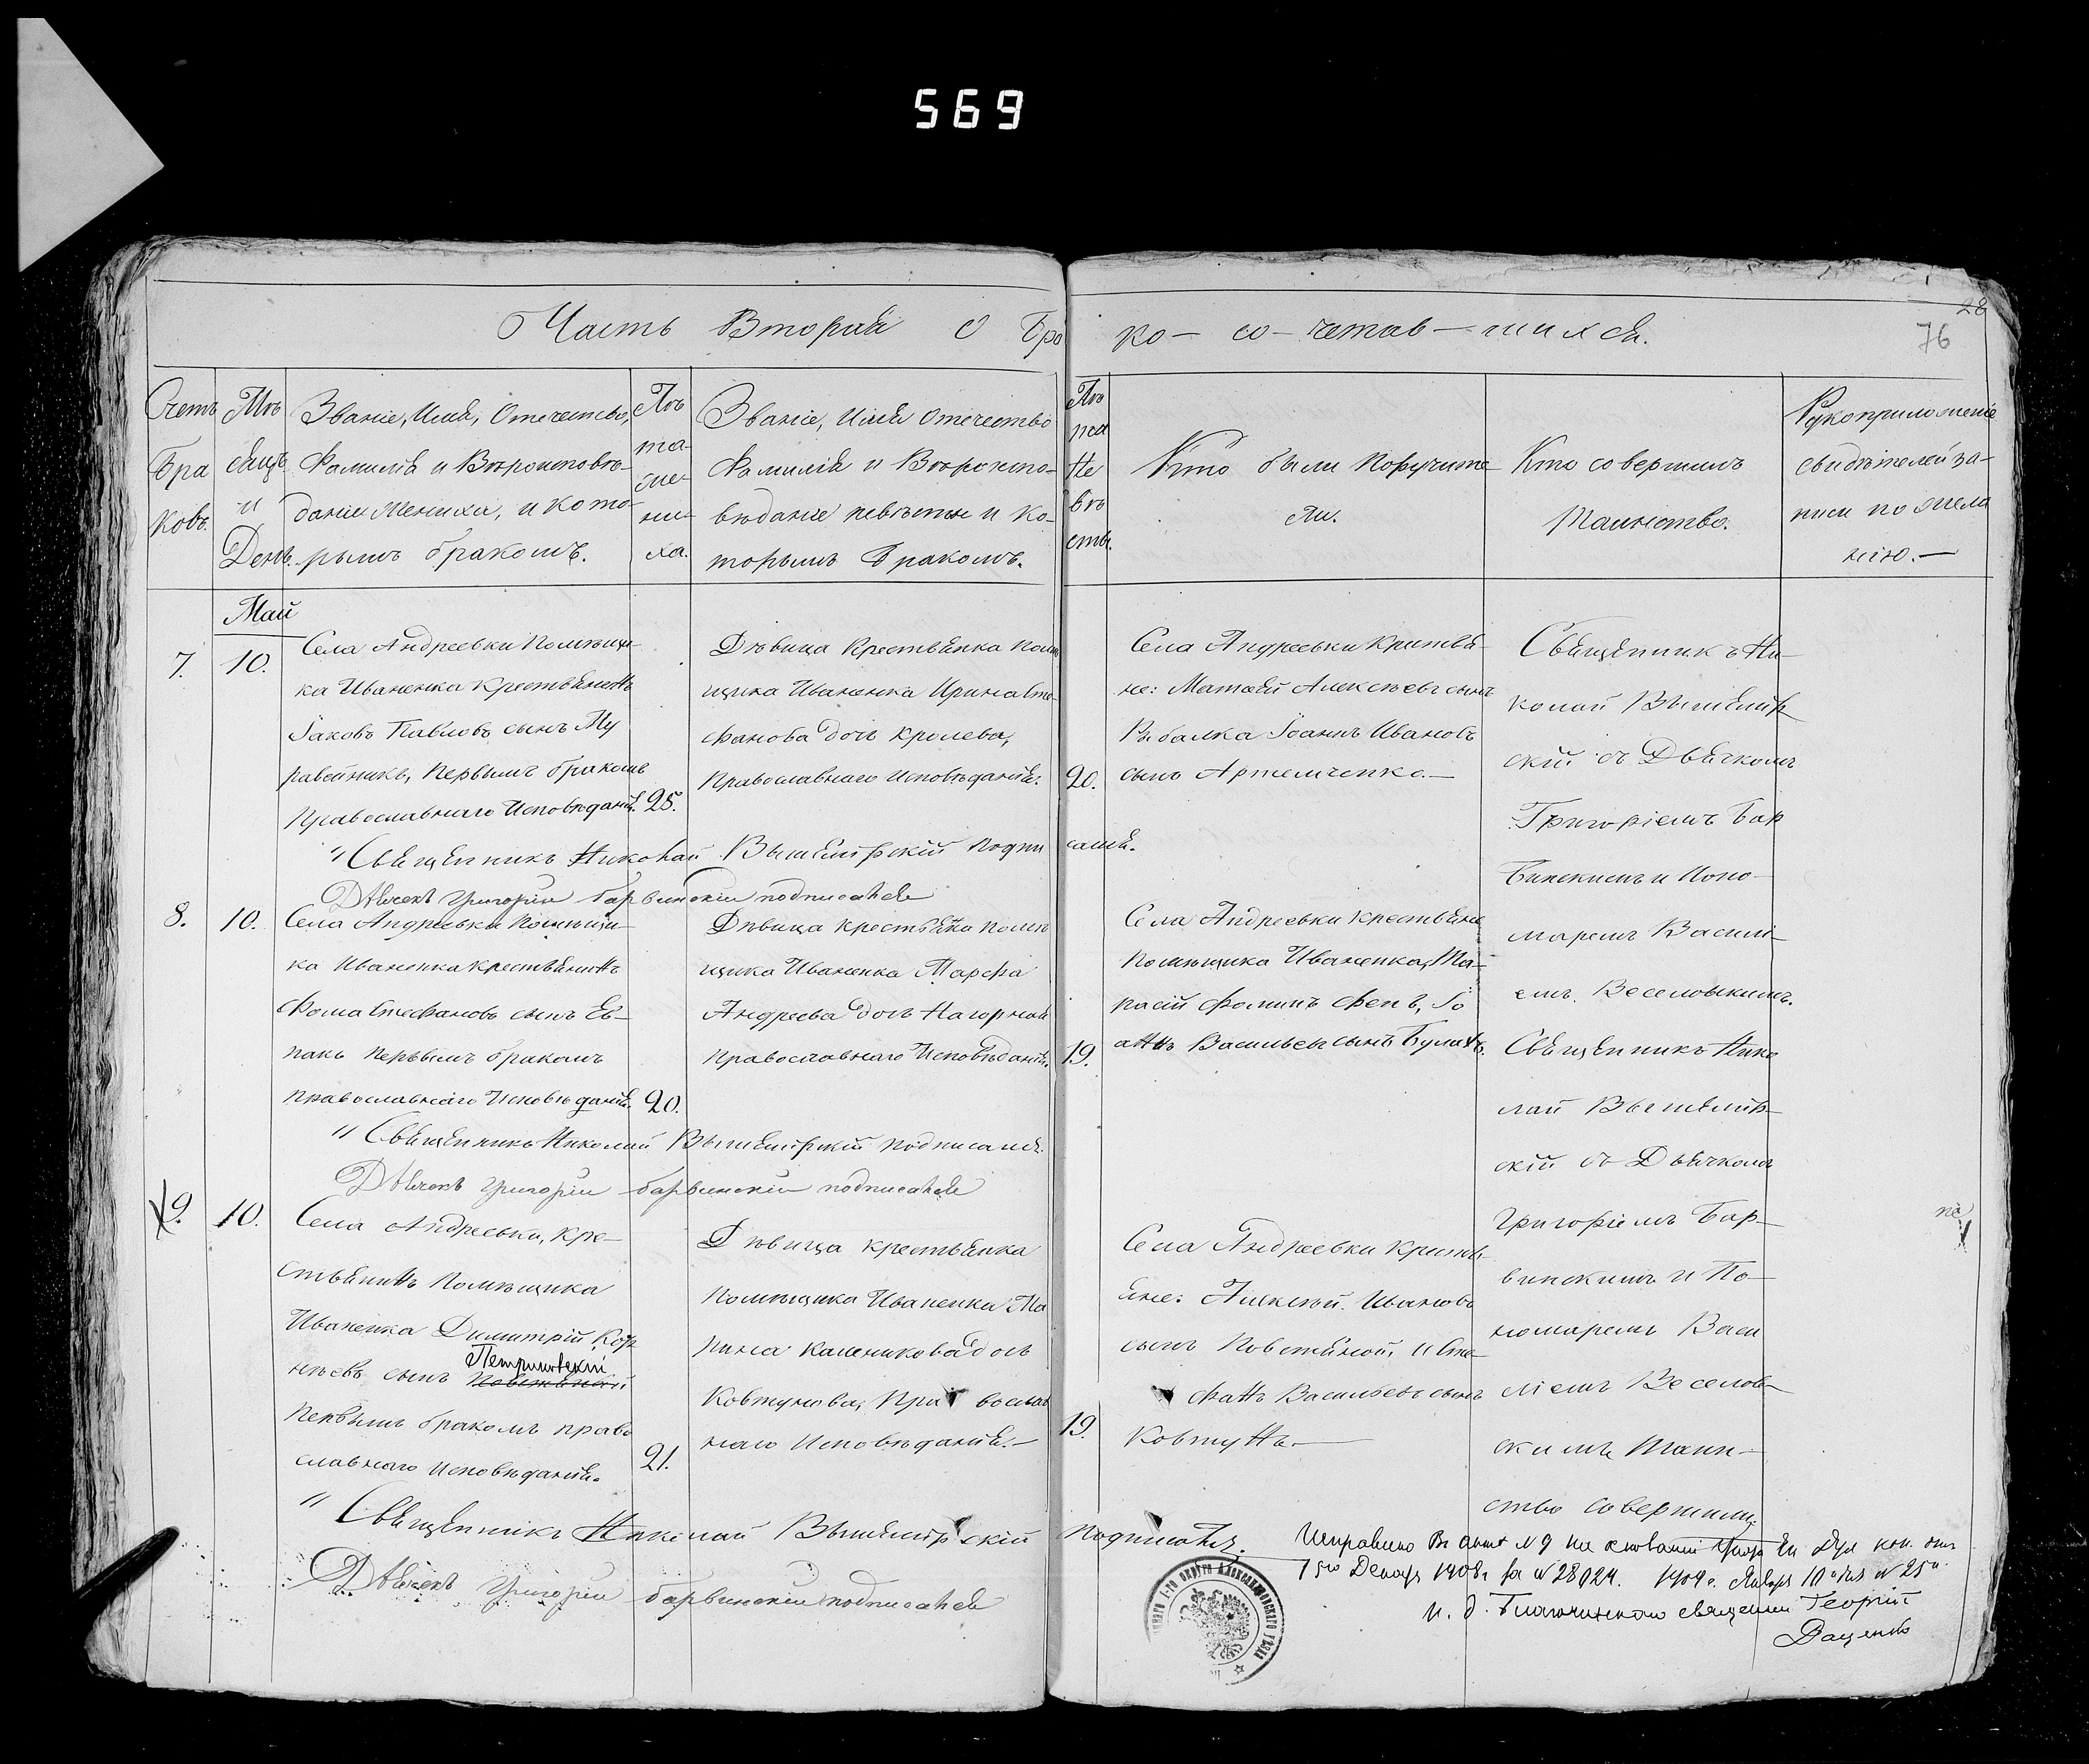 569
Часть Вторая О Бра
ко- со- четав- шихся.
28
76
Счетъ
Бра
ковъ.
Мѣ
сяцъ
и
День.
Званіе, Имя, Отечество,
Фамилія и Вѣроисповѣ-
даніе Жениха, и кото-
рымъ бракомъ.
Лѣ
та-
же-
ни-
ха.
Званіе, Имя Отчество
Фамилія и Вѣроиспо-
вѣданіе невѣсты и ко-
торымъ Бракомъ.
Лѣ
та
Не
вѣ
сты.
Кто были Поручите
ли.
Кто совершилъ
Таинство.
Рукоприложеніе
свидѣтелей за-
писи по жела
нію.—
Май
7. 10.
Села Андреевки Помѣщи-
ка Иваненка Крестьянинъ
Іаковъ Павловъ сынъ Му
равейникъ, Первымъ бракомъ
Православнаго Исповѣданія. 25.
Дѣвица Крестьянка Помѣ
щика Иваненка Ирина Сте-
фанова дочь Кролева,
Православнаго Исповѣданія. 20.
Села Андреевки Кристья-
не: Матѳей Алексѣевъ сынъ
Рыбалка Іоаннъ Ивановъ
сынъ Артемченко.—
Священникъ Ни-
колай Вышемір
скій съ Дьячкомъ
Григоріемъ Бар
Винскимъ и Поно-
маремъ Василі-
емъ Веселовскимъ.
"Священникъ Николай Вышемірскій Подписался.
Дьячекъ Григорій Барвинскій подписался
8. 10.
Села Андреевки Помѣщи-
ка Иваненка Крестьянинъ
Фома Стефановъ сынъ Ев-
пакъ Первымъ бракомъ
Православнаго Исповѣданія. 20.
Дѣвица Крестьянка Помѣ
щика Иваненка Марфа
Андреева дочь Нагорная
Православнаго Исповѣданія. 19.
Села Андреевки Крестьяне
Помѣщика Иваненка, Та-
расій Фоминъ Фень, Іо
аннъ Васильевъ сынъ Булатъ.
Священникъ Нико
лай Вышемір-
скій съ Дьячкомъ
Григоріемъ Бар-
винскимъ и По-
номаремъ Васи
ліемъ Веселов-
скимъ Таин-
ство совершили.
"Священникъ Николай Вышемірскій Подписался.
Дьячекъ Григорій Барвинскій подписался
9. 10.
Села Андреевки, Кре-
стьянинъ Помѣщика
Иваненка Димитрій Кор
нѣевъ сынъ
Петриковскій
Первымъ бракомъ право
славнаго Исповѣданія. 21.
Дѣвица Крестьянка
Помѣщика Иваненка Ма
рина Калениковадочь
Ковтунова, Пра вослав
наго Исповѣданія.— 19.
Села Андреевки Кристь-
яне: Алексѣй Ивановъ
сынъ Повстяной, и Сте-
фанъ Васильевъ сынъ
Ковтунъ.—
"Священникъ Николай Вышемірскій Подписался.
Дьячекъ Григорій Барвинскій подписался
Исправлено въ актѣ № 9 на основаніи
Декабр 1908 г за № 28024. 1909 г. Январ
и. д. Благочиннаго священник Георгій
Даценко
1-го округа Александровскаго уѣзда